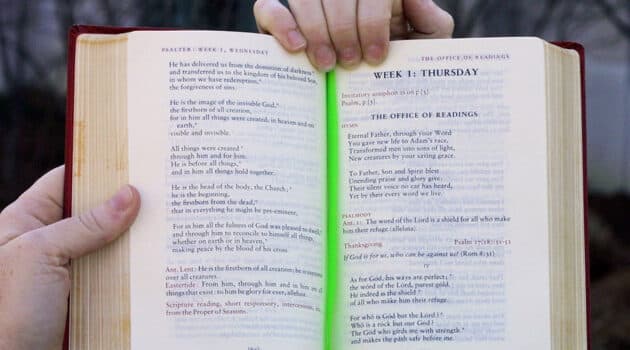 PSALTER: WEEK 1, WEDNESDAY
He has delivered us from the dominion of darkness*
and transferred us to the kingdom of his beloved Son,
in whom we have redemption,*
the forgiveness of sins.
He is the image of the invisible God,*
the firstborn of all creation,
for in him all things were created, in heaven and on
earth,*
visible and invisible.
All things were created*
through him and for him.
He is before all things,*
and in him all things hold together.
He is the head of the body, the Church;*
he is the beginning,
the firstborn from the dead,*
that in everything he might be pre-eminent,
For in him all the fulness of God was pleased to dwell,*
and through him to reconcile to himself all things,
whether on earth or in heaven,*
making peace by the blood of his cross.
Ant. Lent: He is the firstborn of all creation; he is supreme
over all creatures.
Eastertide: From him, through him and in him are all
things that exist: to him be glory for ever, alleluia.
Scripture reading, short responsory, intercessions, etc.,
from the Proper of Seasons.
THE OFFICE OF READINGS
WEEK 1: THURSDAY
Invitatory antiphon as on p [3].
Psalm, p [3].
THE OFFICE OF READINGS
HYMN
Eternal Father, through your Word
You gave new life to Adam's race,
Transformed men into sons of light,
New creatures by your saving grace.
To Father, Son and Spirit blest
Unending praise and glory give;
Their silent voice no ear has heard,
Yet by their every word we live.
PSALMODY
Ant. 1: The word of the Lord is a shield for all who make
him their refuge (alleluia).
Thanksgiving
Psalm 17(18):31-51
If God is for us, who can be against us? (Rom 8:31)
IV
As for God, his ways are perfect;*
the word of the Lord, purest gold.
He indeed is the shield*
of all who make him their refuge.
For who is God but the Lord?*
Who is a rock but our God?
The God who girds me with strength*
and makes the path safe before me.